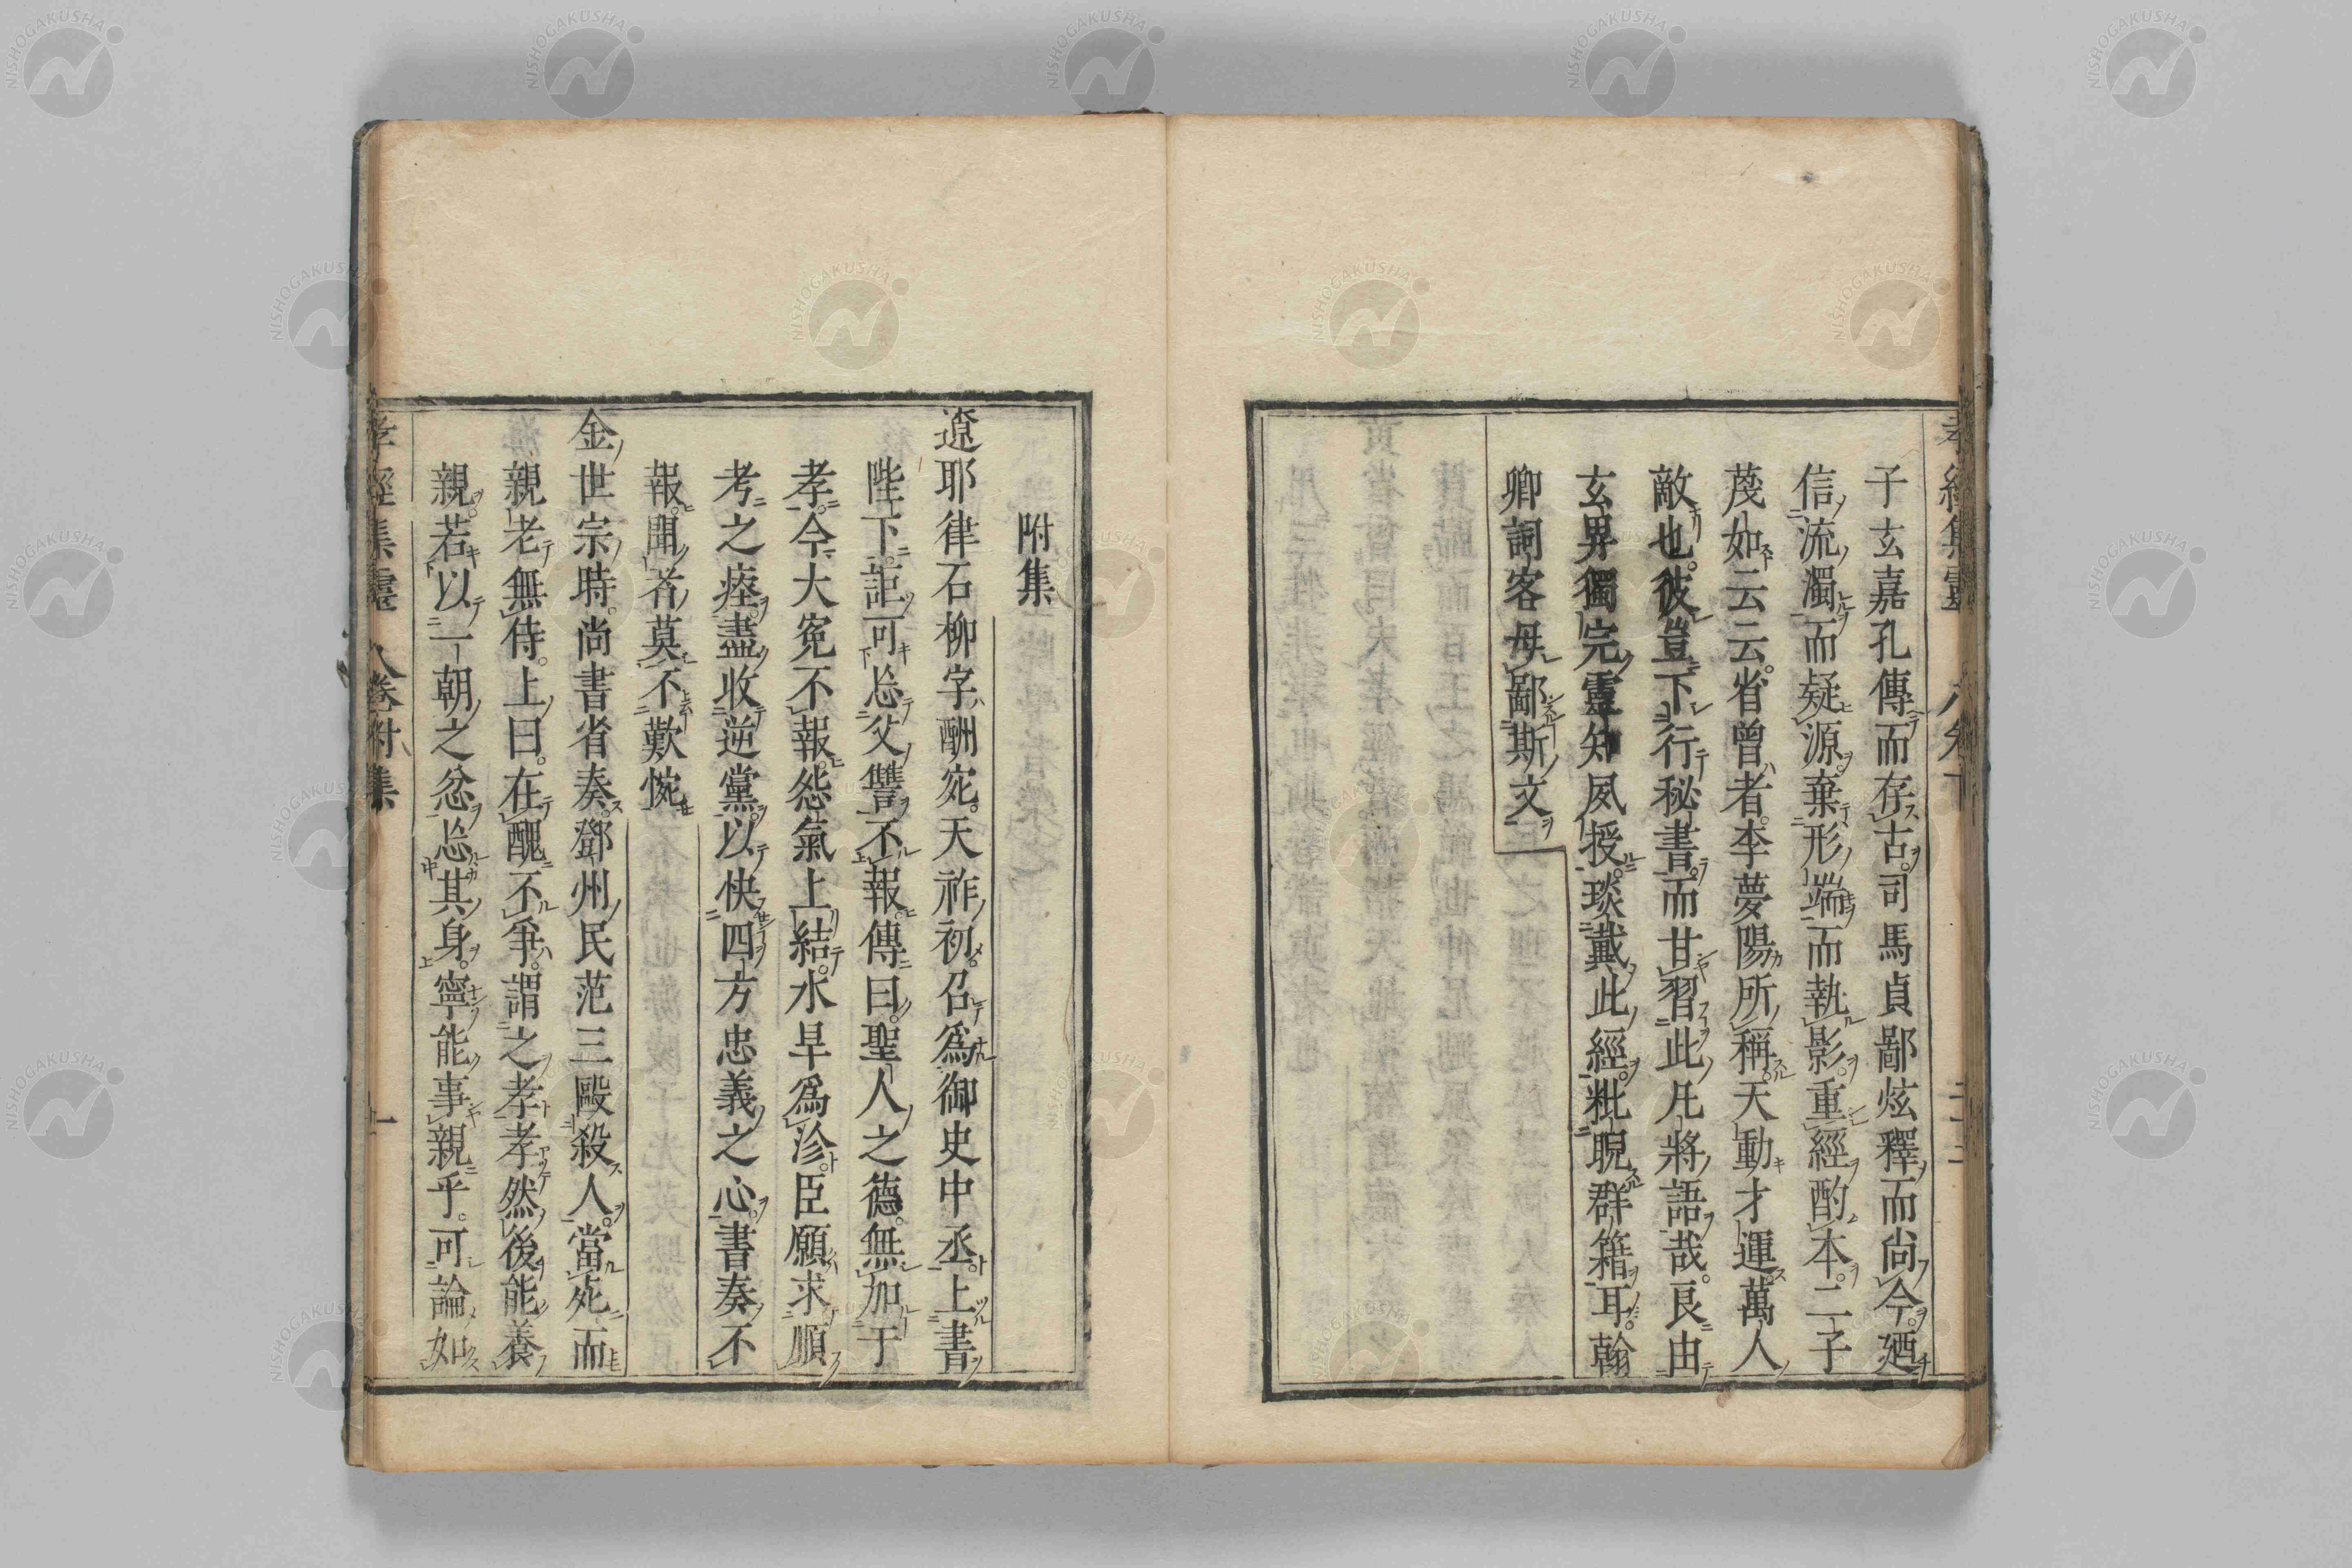 子玄嘉孔傳而存古司馬貞鄙炫釋而尚今廼
信流濁而疑源棄形端而執影重經酌本二子
茂如云云省曾者李夢陽所稱天動才運萬人
敵也彼豈下行秘書而甘習此凡將語哉良由
玄畀獨完靈知夙授琰戴此經粃睨群籍耳翰
卿詞客毋鄙斯文
附集
遼耶律石柳字酬宛天祚初召為御史中丞上書
陛下詎可忘父讐不報傳曰聖人之德無加于
孝今大寃不報怨氣上結水旱為沴臣願求順
考之瘞盡收逆黨以快四方忠義之心書奏不
報聞者莫不歎惋
金世宗時尚書省奏鄧州民范三毆殺人當死而
親老無侍上曰在醜不爭謂之孝孝然後能養
親若以一朝之忿忘其身寧能事親乎可論如
孝經集靈 八卷附集 一
NISHOGAKUSHA